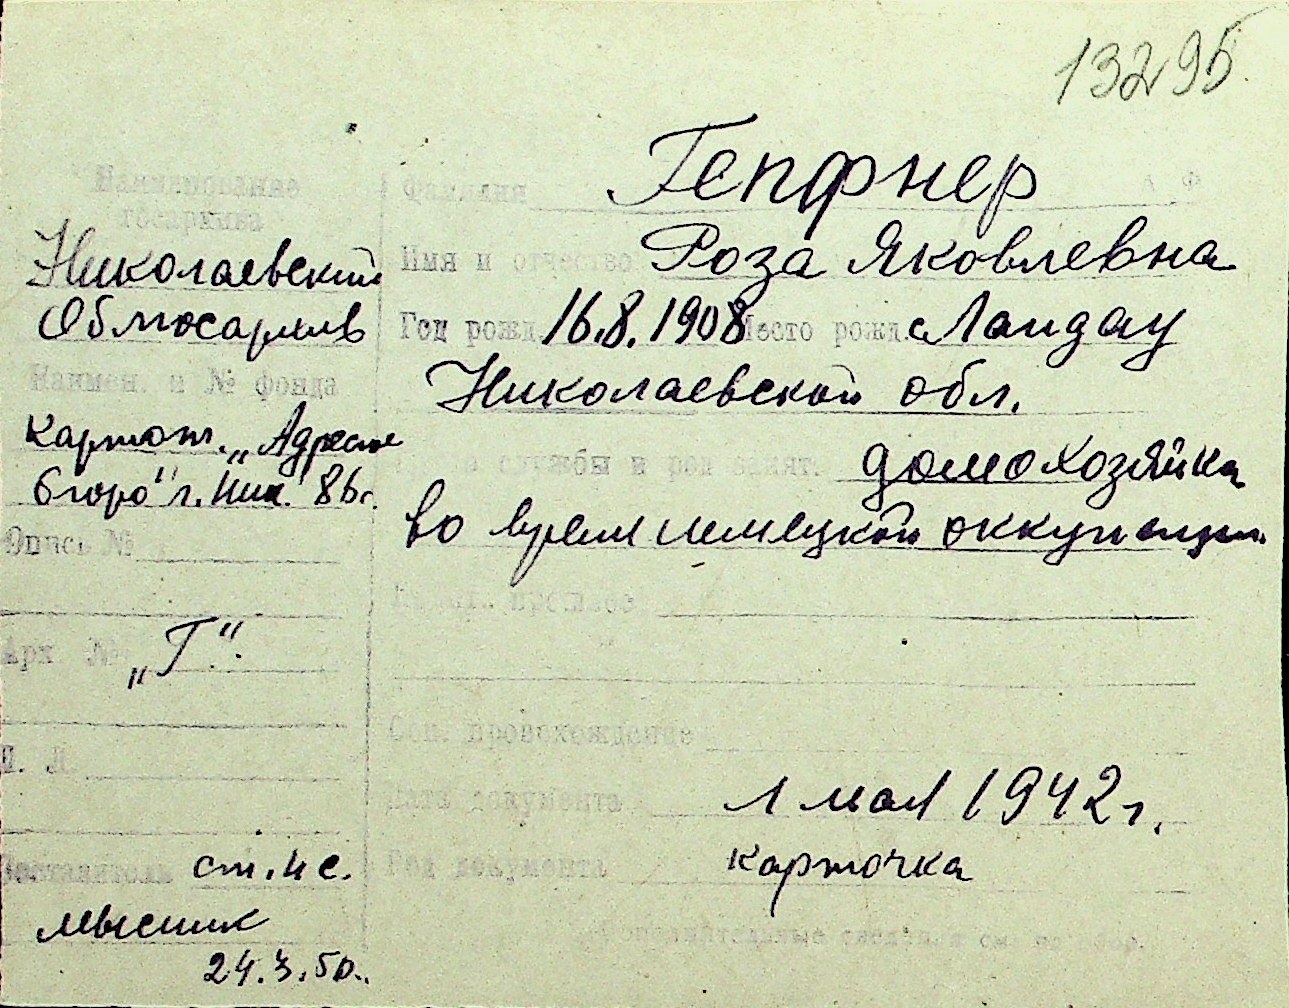 13295
Наименование
госархива
Николаевский
Облгосархив
Наимен. и № фонда
Картот. „Адресное
бюро" г. Ник. 86г.
Опись №
Арх. №
„Г."
П. Л.
Составитель ст. н с.
Мысник
24.3.50.
Фамилия Гепфнер
Имя и отчество Роза Яковлевна
Год рожд. 16.8.1908 Место рожд. с Ландау
Николаевской обл.
службы и род занят. домохозяйка
во время немецкой оккупации
Соц. происхождение
Дата документа 1 мая 1942 г.
Род документа карточка
Дополнительные сведения см. на обор.